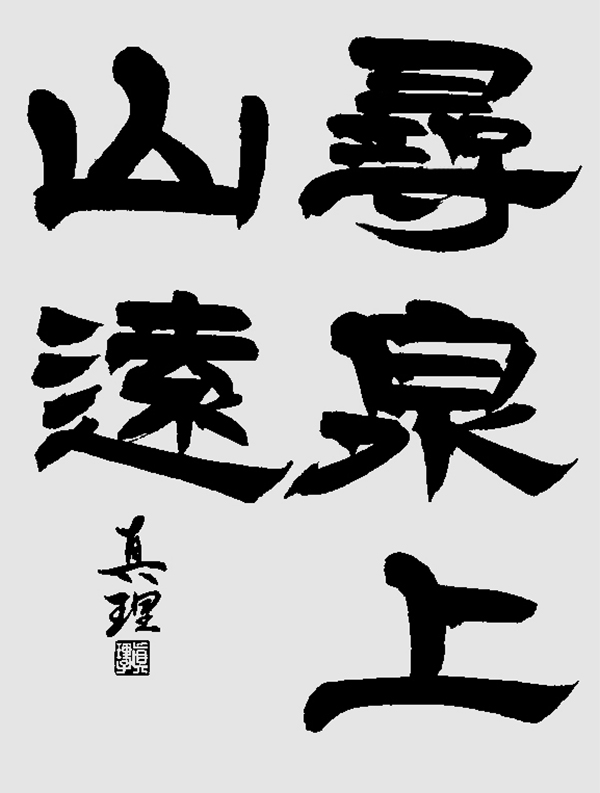 尋泉上
山遠
真理